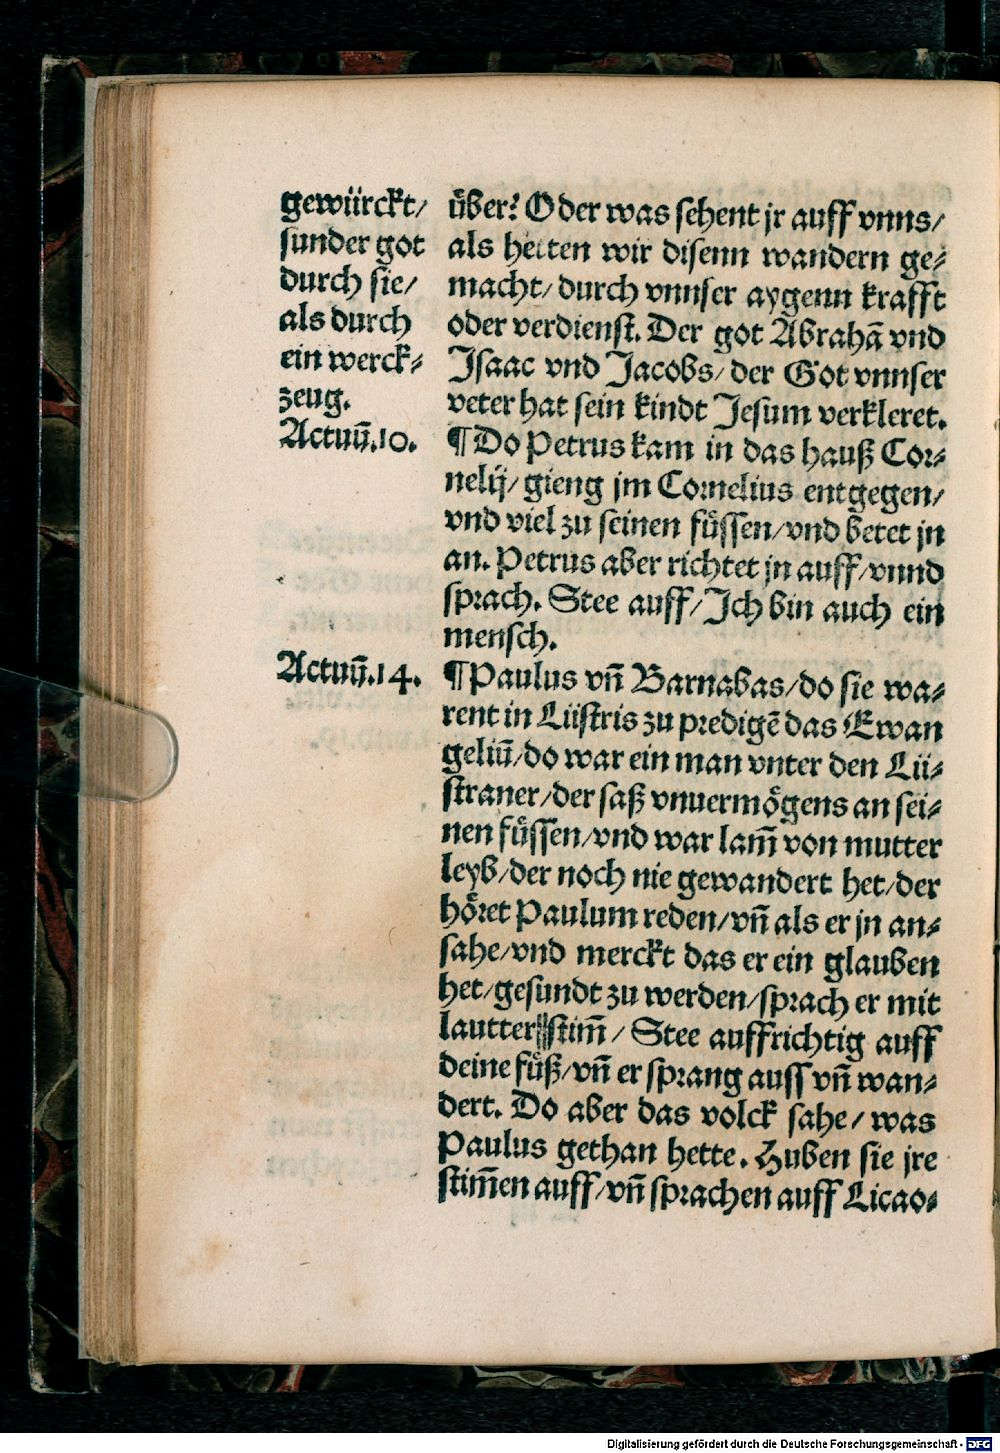 gewürckt/
sunder got
durch sie/
als durch
ein werck⸗
zeug.
Actuū̃.10.
Actuū̃.14.
über? Oder was sehent jr auff vnns/
als hetten wir disenn wandern ge⸗
macht/ durch vnnser aygenn krafft
oder verdienst. Der got Abrahā vnd
Isaac vnd Jacobs/ der Got vnnser
veter hat sein kindt Jesum verkleret.
¶ Do Petrus kam in das hauß Cor⸗
nelij/ gieng jm Cornelius entgegen/
vnd viel zu seinen fuͤssen/ vnd betet jn
an. Petrus aber richtet jn auff/ vnnd
sprach. Stee auff/ Ich bin auch ein
mensch.
¶ Paulus vñ Barnabas/ do sie wa⸗
rent in Lüstris zu predigē das Ewan
geliū/ do war ein man vnter den Lü⸗
straner/ der saß vnuermoͤgens an sei⸗
nen fuͤssen/ vnd war lam̃ von mutter
leyb/ der noch nie gewandert het/ der
hoͤret Paulum reden/ vñ als er jn an⸗
sahe/ vnd merckt das er ein glauben
het/ gesundt zu werden/ sprach er mit
lautter stim̃/ Stee auffrichtig auff
deine fuͤß/ vñ er sprang auff vñ wan⸗
dert. Do aber das volck sahe/ was
Paulus gethan hette. Huben sie jre
stim̃en auff/ vñ sprachen auff Licao⸗
Digitalisierung gefördert durch die Deutsche Forschungsgemeinschaft - DFG